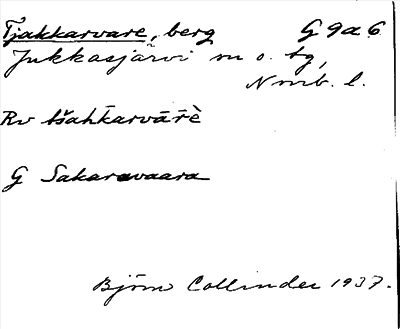 Tjakkarvare, berg G 9a 6
Jukkasjärvi m o. tg,
Nmb. l.
Rv tšaħkarvārè
G Sakaravaara
Björn Collinder 1937.